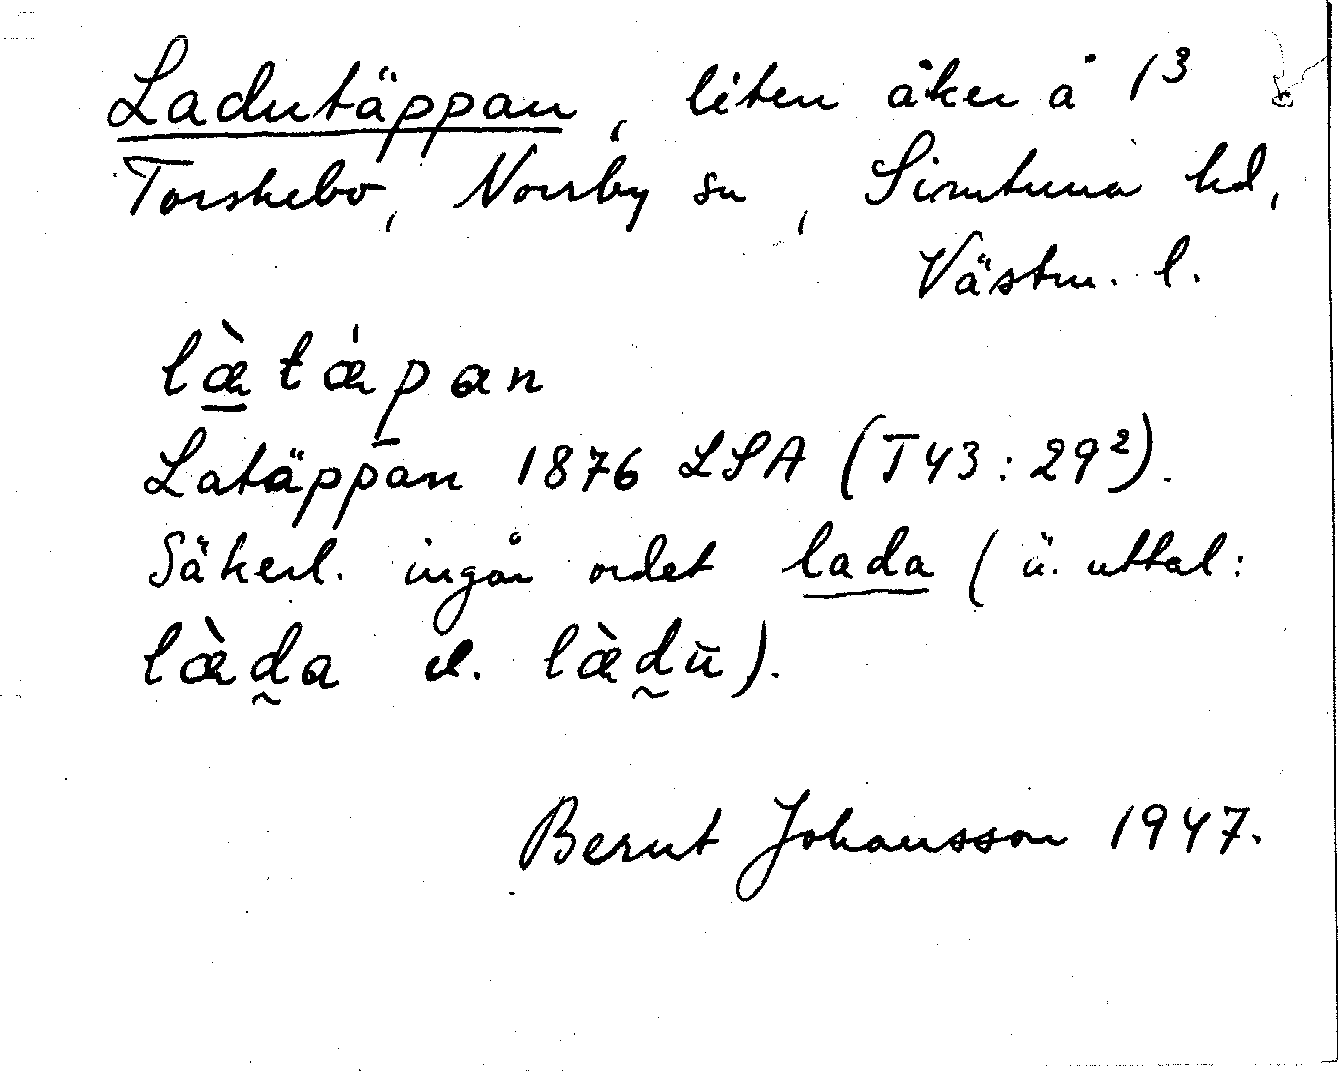 Ladutäppan, liten åker å 1³
Torskebo, Norrby sn, Simtuna hd,
Västm. l.
lὰtάpan
Latäppan 1876 LSA (T43:29²).
Säkerl. ingår ordet lada (ä. uttal:
lὰd̰a el. lὰd̰ū).
Bernt Johansson 1947.